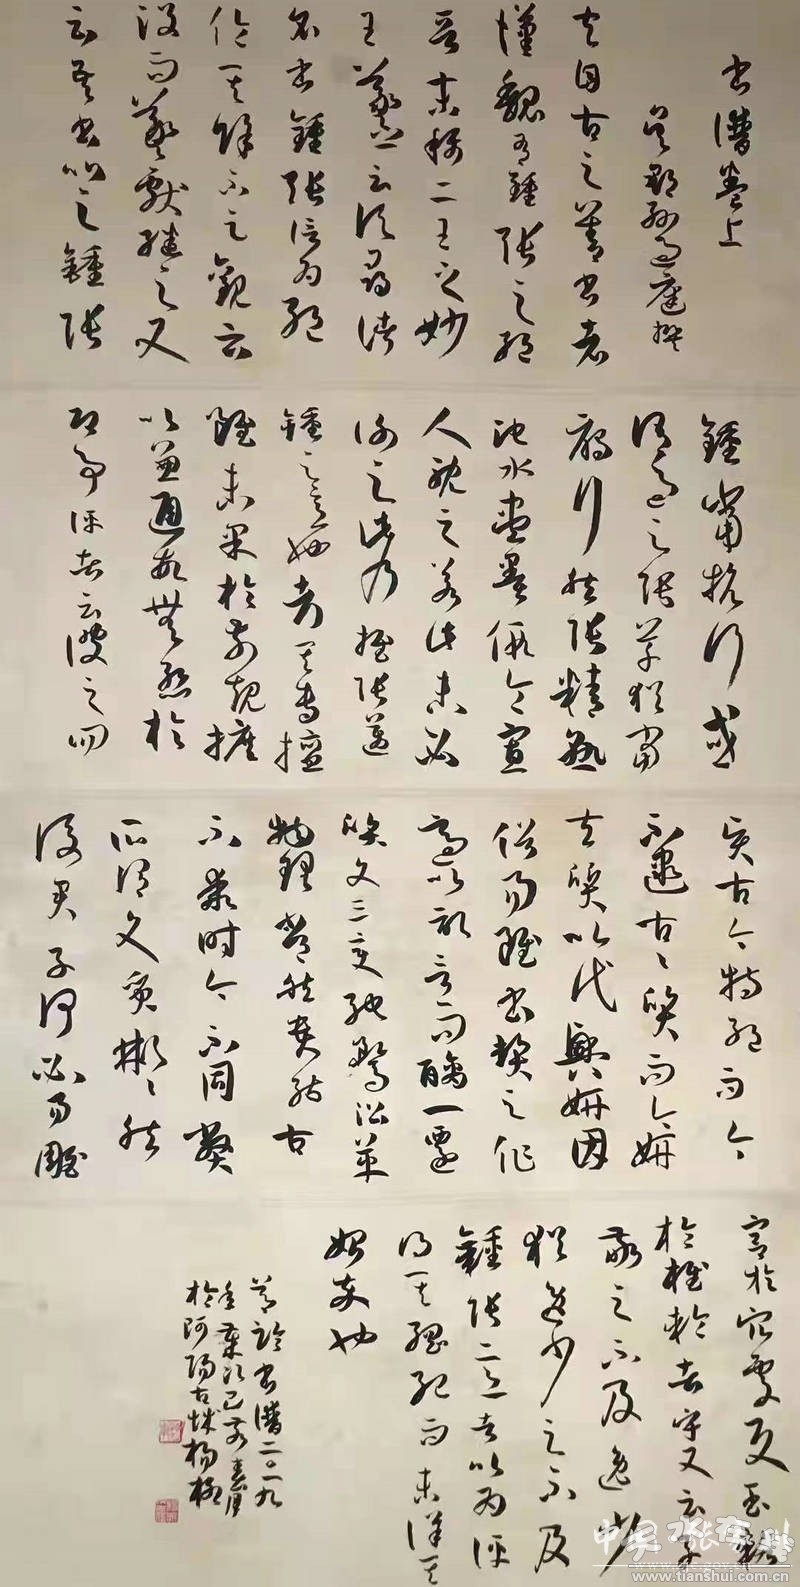 書譜卷上
吳郡孫過庭撰
夫自古之善書者
漢魏有鍾張之絕
晉末稱二王之妙
王羲之云頃尋諸
名書鍾張信為絕
倫其餘不足觀云
沒而羲獻繼之又
云吾書比之鍾張
鍾當抗行或
謂過之張草猶當
雁行然張精熟
池水盡墨假令寡
人耽之若此未必
謝之此乃推張邁
鍾之意也考其專擅
雖未果於前規摭
以兼通故無慚於
即事評者云彼之四
賢古今特絕而今
不逮古〻質而今妍
夫質以代興妍因
俗易雖書契之作
適以記言而醨一遷
質文三變馳騖沿革
物理常然貴能古
不乖時今不同弊
所謂文質彬〻然
後君子何必易雕
宮於穴處反玉輅
於椎輪者乎又云子
敬之不及逸少
猶逸少之不及
鍾張意者以為評
得其綱紀而未詳其
始卒也
節臨書譜二〇一九
年歲次己亥春月
於阿陽古城楊
www.tianshui.com.cn